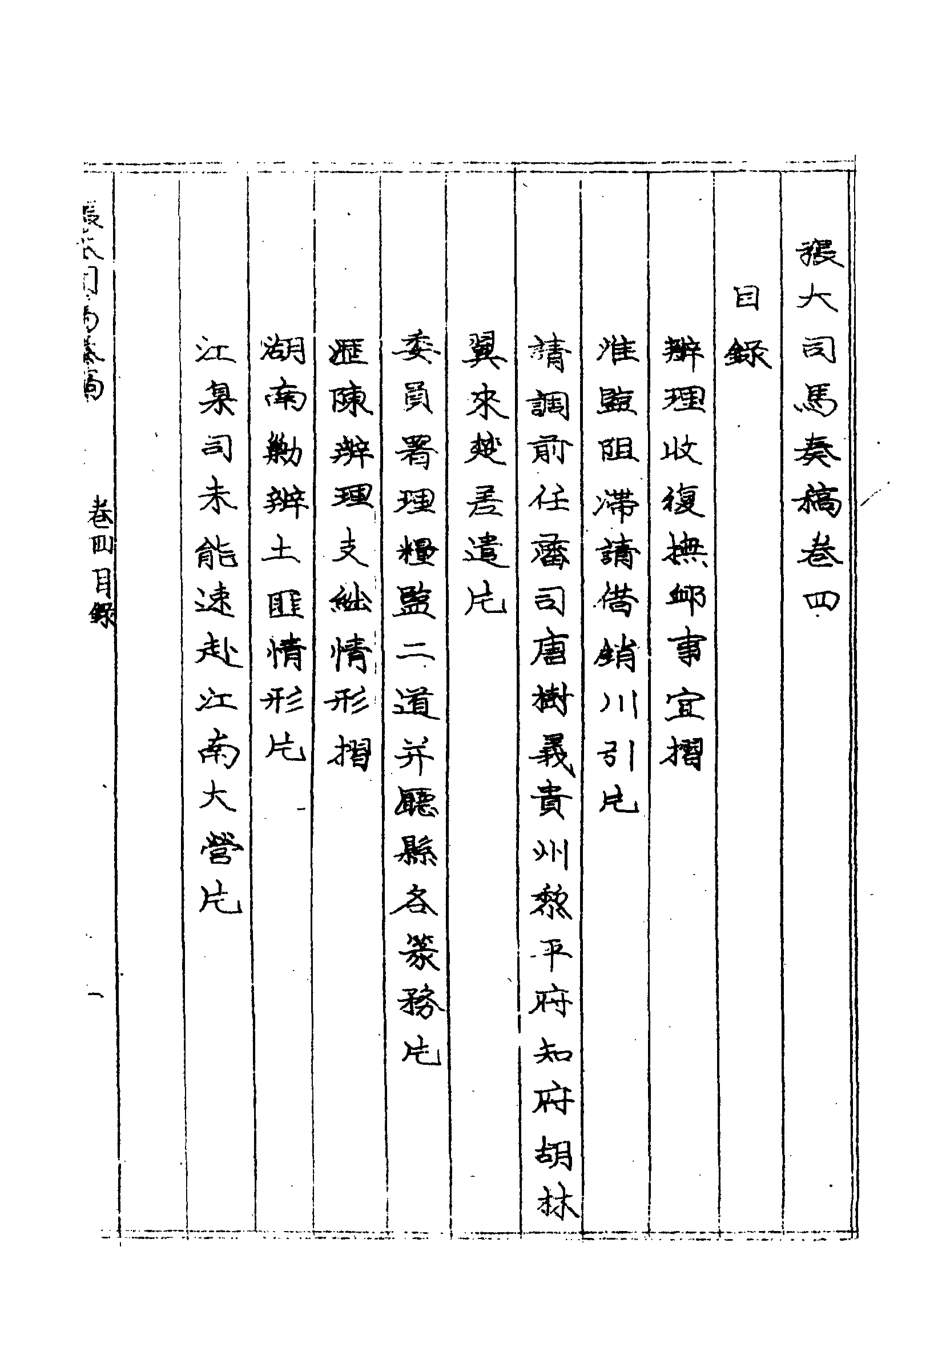 張大司馬奏稿卷四
目錄
辦理收復撫卹事宜摺
淮鹽阻滯請借銷川引片
請調前任藩司唐樹義貴州黎平府知府胡林
翼來楚差遣片
委員署理糧鹽二道并廳縣各篆務片
滙陳辦理支絀情形摺
湖南勦辦土匪情形片
江臬司未能速赴江南大營片
張大司馬奏稿
卷四目錄
一